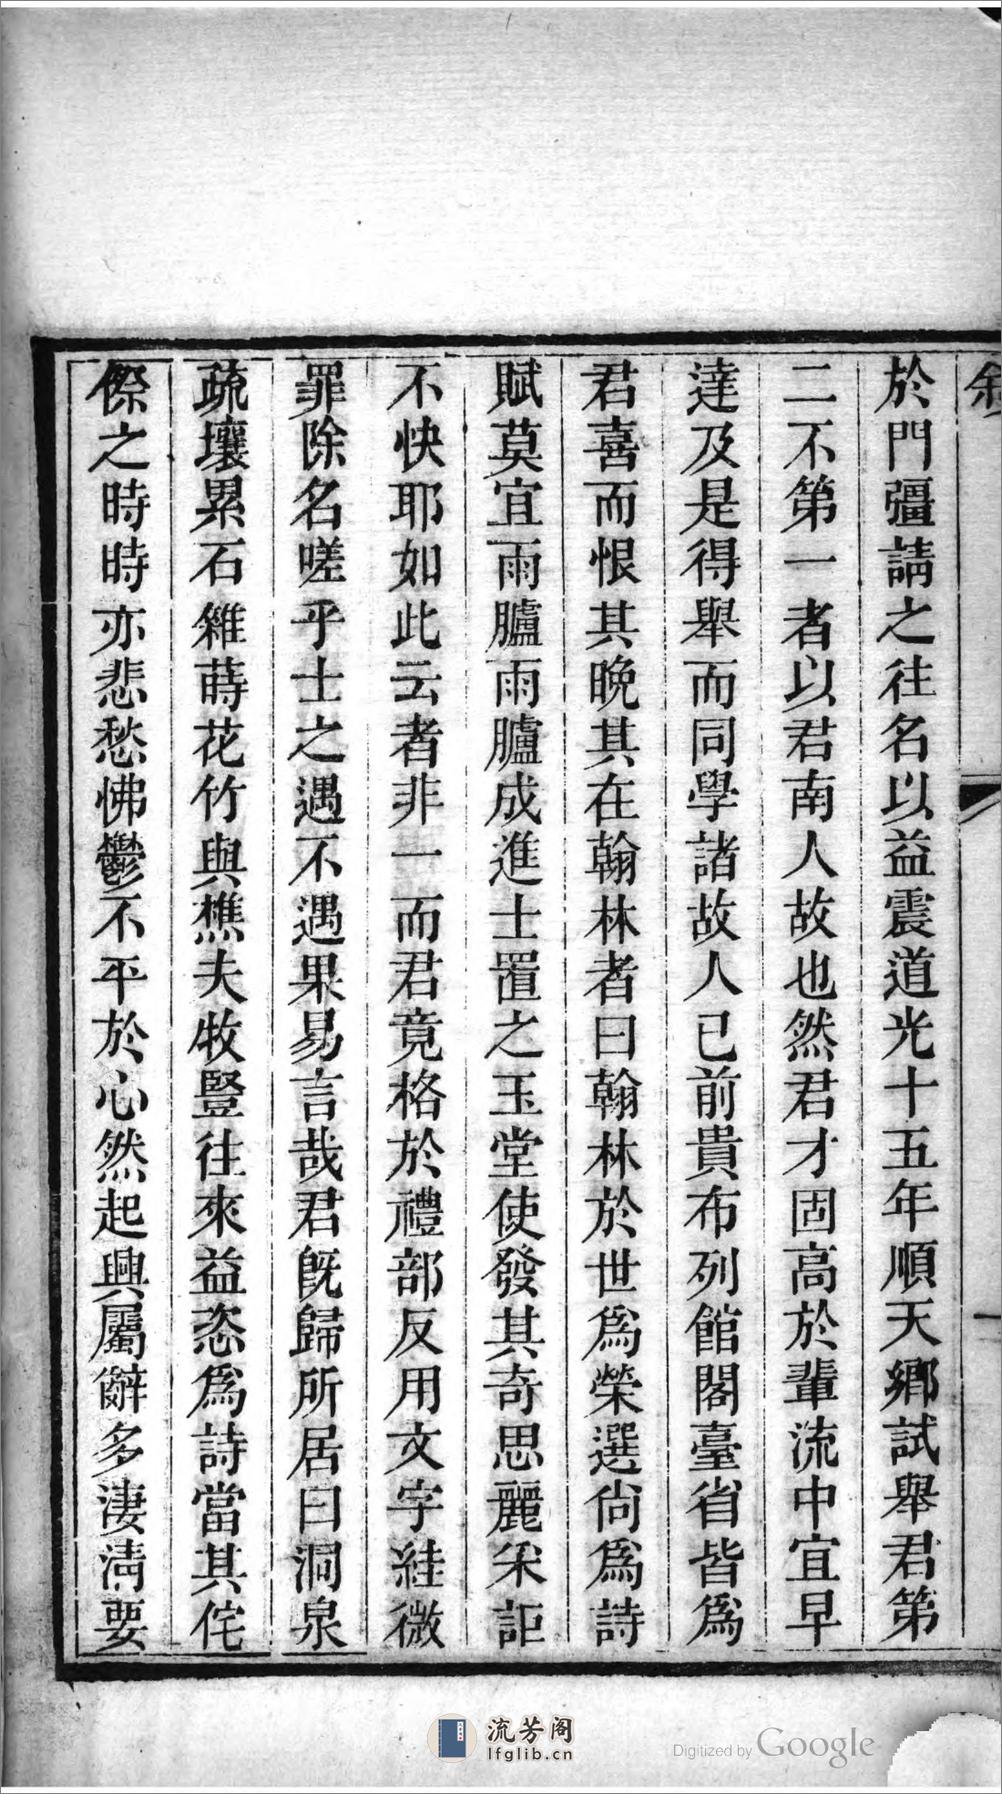 於門彊請之往名以益震道光十五年順天鄉試舉君第
二不第一者以君南人故也然君才固高於輩流中宜早
達及是得舉而同學諸故人已前貴布列館閣臺省皆爲
君喜而恨其晚其在翰林者曰翰林於世爲榮選尙爲詩
賦莫宜雨臚雨臚成進士置之玉堂使發其奇思麗采詎
不快耶如此云者非一而君竟格於禮部反用文字絓微
罪除名嗟乎士之遇不遇果易言哉君旣歸所居曰洞泉
疏壤累石雜蒔花竹與樵夫牧豎往來益恣爲詩當其侘
傺之時時亦悲愁怫鬱不平於心然起興屬辭多淒淸要
流芳阁
lfglib.cn
Digitized by Google